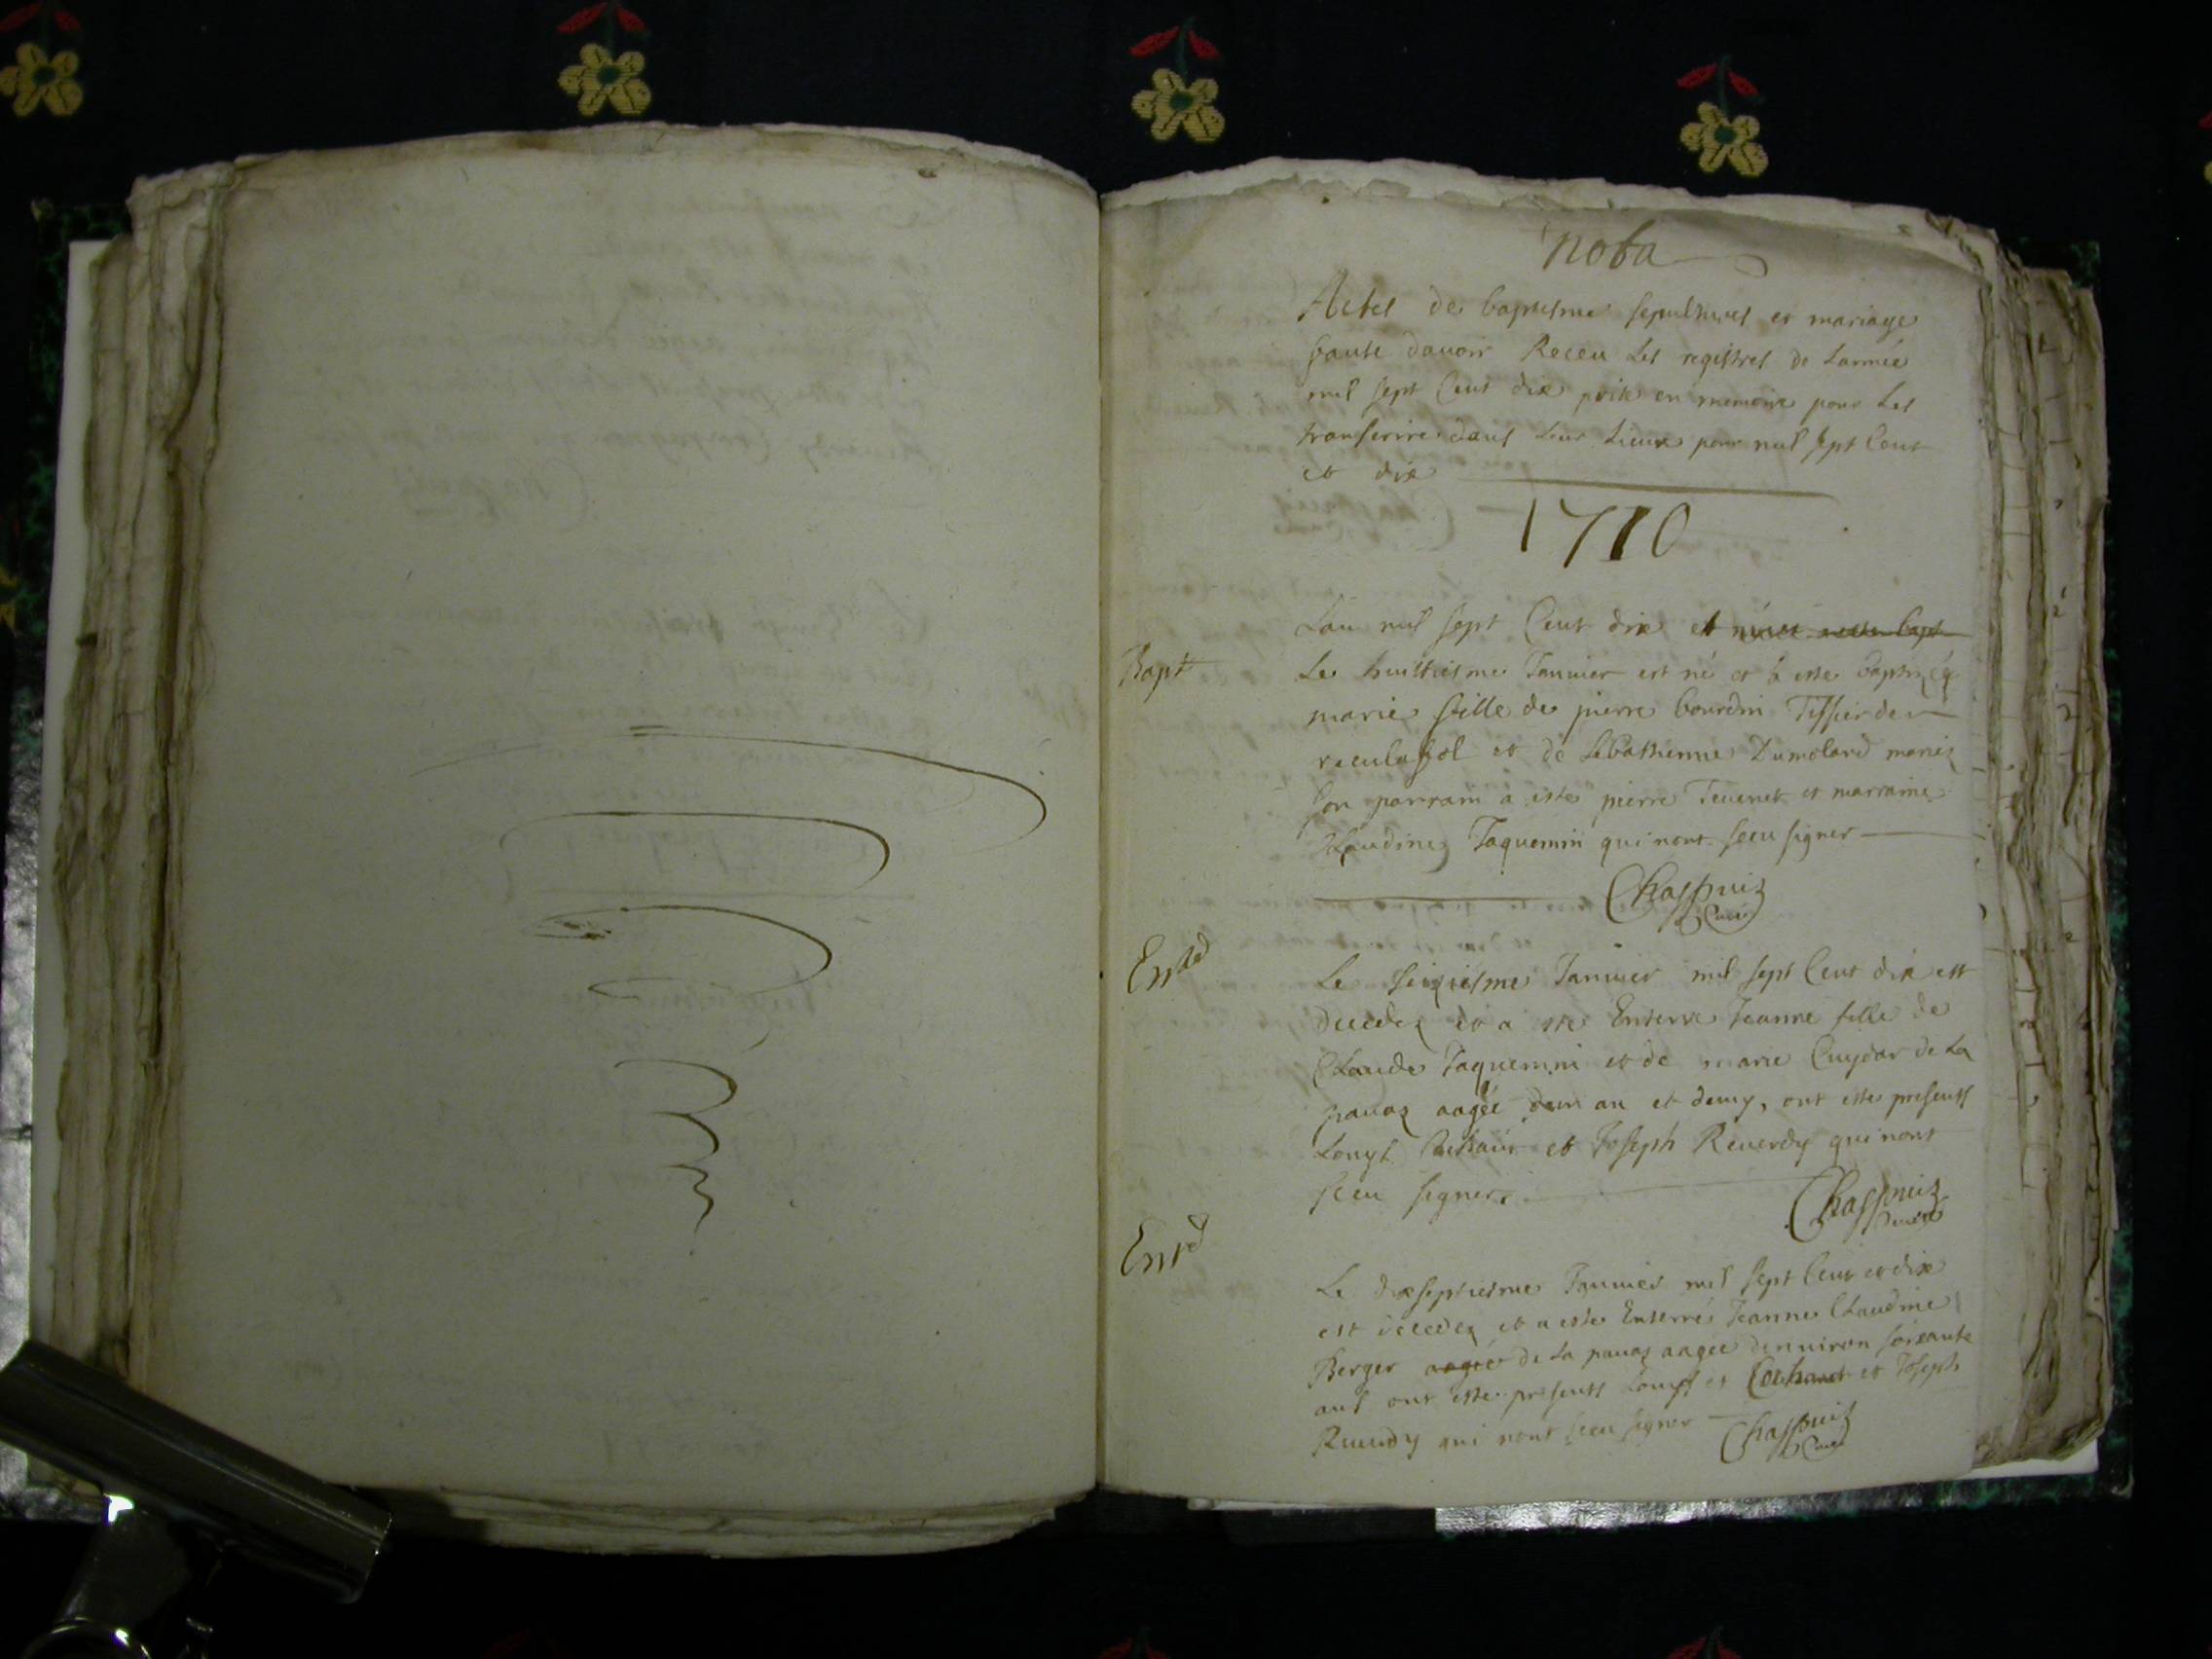 nota
Actes de baptesme sepultures et mariage
faute davoir Receu les registres de Lannée
mil sept Cent dix pris en memoire pour les
transcrire dans leur lieux pour mil sept Cent
et dix
1710
Lan mil sept Cent dix et
Bapt
Le huittiesme Janvier est né et a esté baptizéé
marie fille de pierre bourdin Tissier de
reculafol et de Sebastienne Dumolard mariez
son parrain a esté pierre Tevenet et marraine
Claudine Jaquemin qui nont sceu signer
Chaspuiz
Curé
Le seiziesme Janvier mil sept Cent dix est
decedez et a esté Enterré Jeanne fille de
Claude Jaquemin et de marie Cuydar de La
pavaz aagée dun an et demy, ont esté presents
Louys et Joseph Reverdy qui nont
sceu signer
Chaspuiz
Curé
Le dixseptiesme Janvier mil sept Cent et dix
est decedez et a esté Enterré Jeanne Claudine
Berger aagée de La pavaz aagée denviron soixante
ans ont esté presents Louys et Joseph
Reverdy qui nont sceu signer
Chaspuiz
Curé